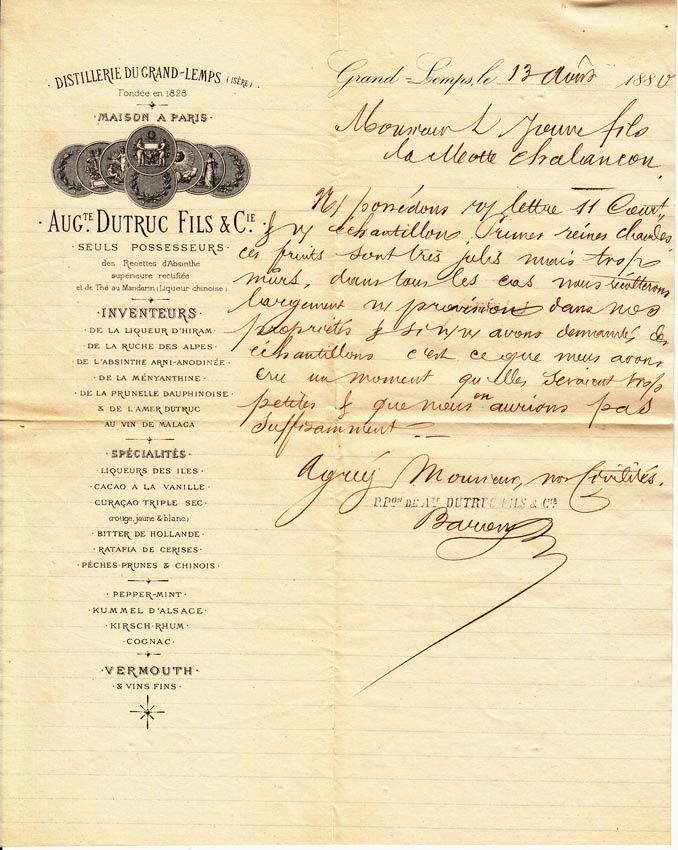 · DISTILLERIE DU GRAND-LEMPS (ISÈRE) ·
Fondée en 1828
· MAISON A PARIS ·
· AUG.TE DUTRUC FILS & C.IE ·
· SEULS POSSESSEURS ·
des Recettes d'Absinthe
supérieure rectifiée
et de Thé au Mandarin (Liqueur chinoise)
· INVENTEURS ·
· DE LA LIQUEUR D'HIRAM ·
· DE LA RUCHE DES ALPES ·
· DE L'ABSINTHE ARNI-ANODINÉE ·
· DE LA MÉNYANTHINE ·
· DE LA PRUNELLE DAUPHINOISE ·
& DE L'AMER DUTRUC
AU VIN DE MALAGA
· SPÉCIALITÉS ·
· LIQUEURS DES ILES ·
· CACAO A LA VANILLE ·
· CURAÇAO TRIPLE SEC ·
(rouge, jaune & blanc)
· BITTER DE HOLLANDE ·
· RATAFIA DE CERISES ·
· PÊCHES · PRUNES & CHINOIS ·
· PEPPER-MINT ·
· KUMMEL D'ALSACE ·
· KIRSCH · RHUM ·
· COGNAC ·
· VERMOUTH ·
· & VINS FINS ·
Grand-Lemps, le 13 188
Monsieur L Jouve fils
La Motte Chalancon
possédons lettre 11 Court
& échantillon Prunes reines claudes
ces fruits sont très jolies mais trop
mûrs, dans tous les cas nous récolterons
largement provision dans nos
propriétés & si avons demandé des
échantillons c'est ce que nous avons
cru un moment qu'elles seraient trop
petites & que nous en aurions pas
suffisamment
Agréez Monsieur, nos Civilités.
P.PON DE A.TE DUTRUC FILS & CIE